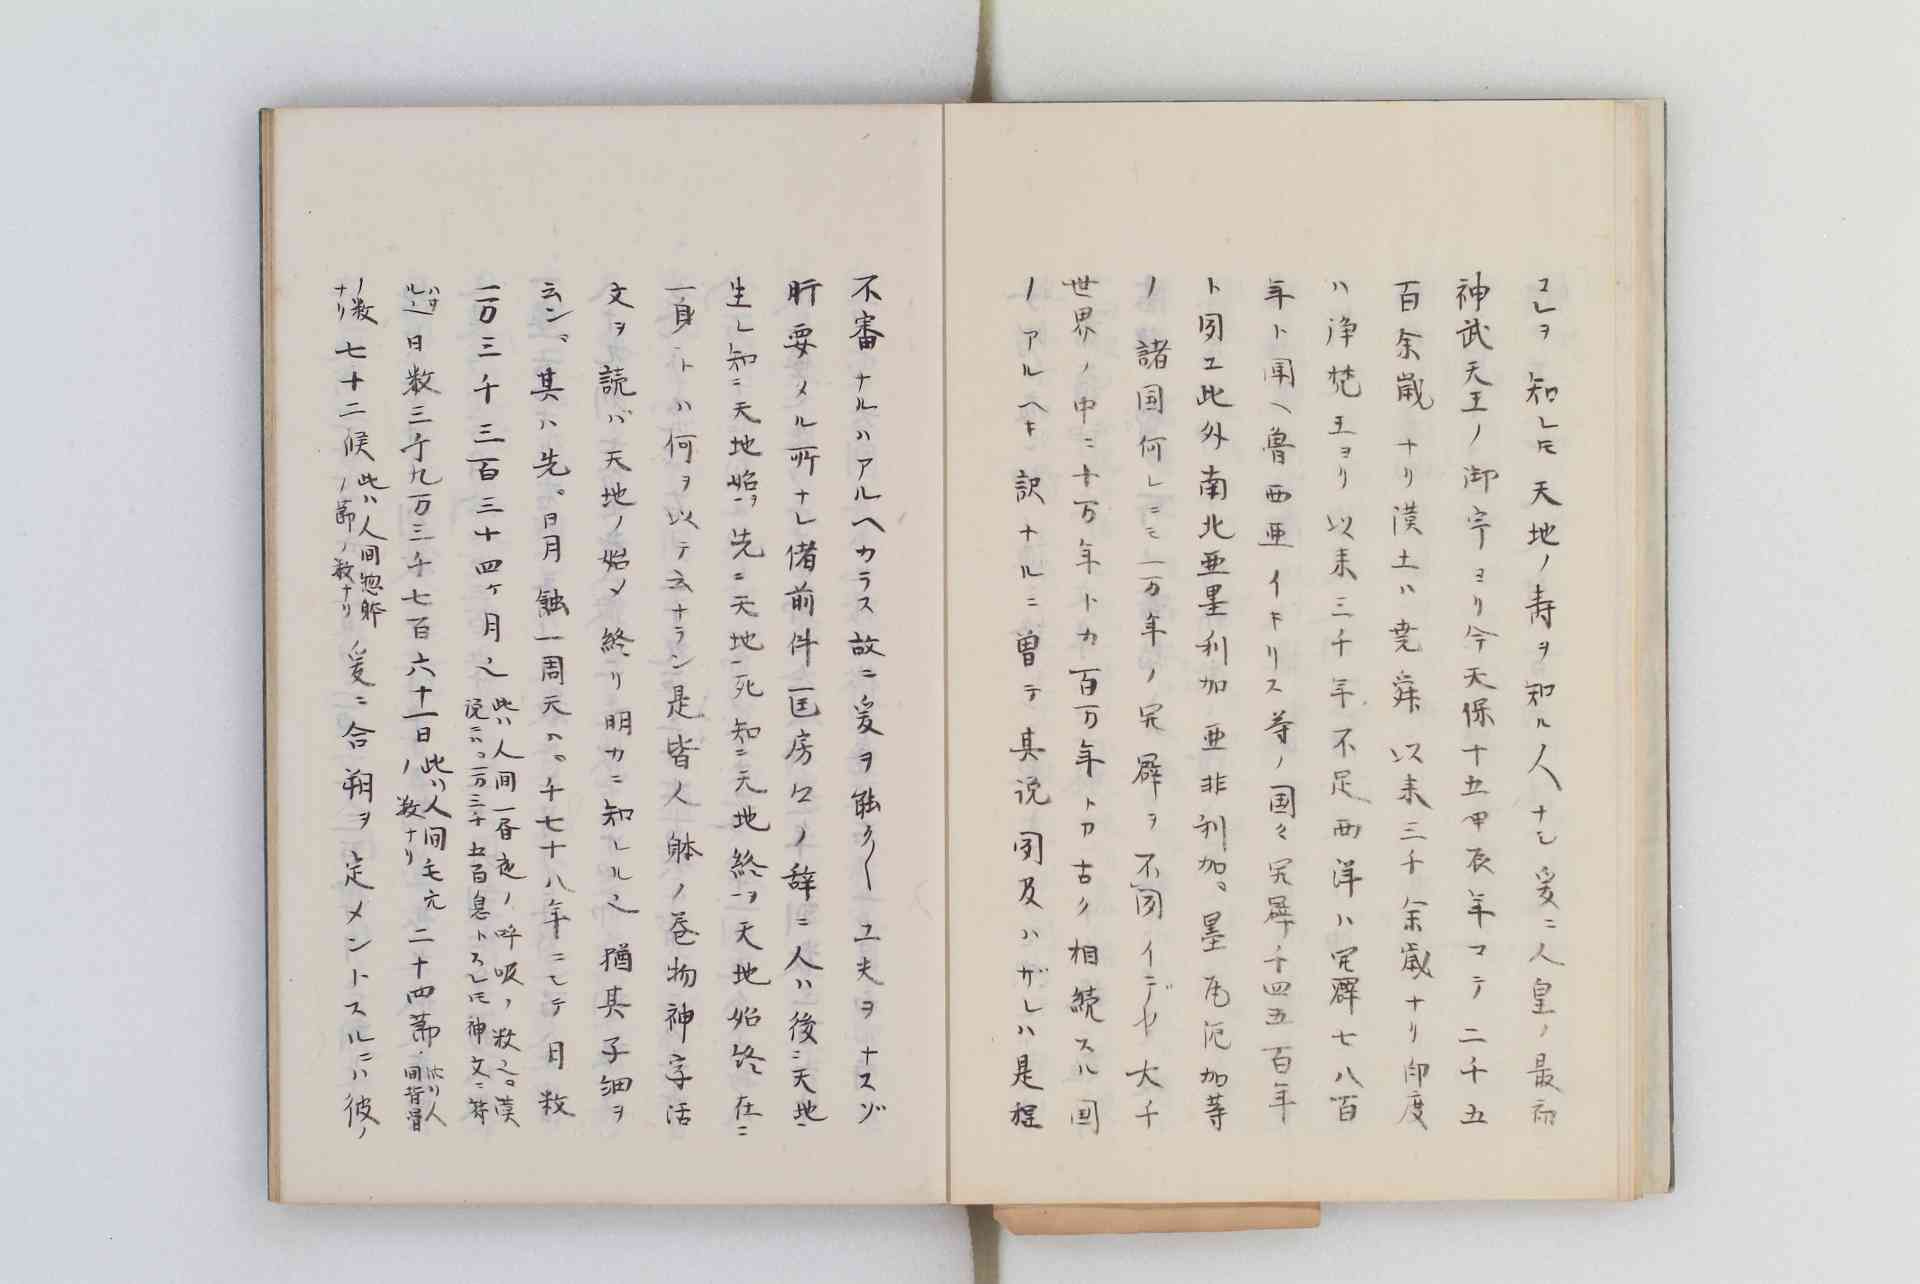 コレヲ知レ𪜈天地ノ寿ヲ知ル人ナシ爰ニ人皇ノ最初
神武天王ノ御宇ヨリ今天保十五甲辰年マテ二千五
百余歳ナリ漢土ハ尭舜以来三千余歳ナリ印度
ハ浄梵王ヨリ以来三千年不足西洋ハ開闢七八百
年ト聞ヘ魯西亜イキリス等ノ国々開闢千四五百年
ト聞ユ此外南北亜墨利加亜非利加。墨瓦厄加等
ノ諸国何レニニ一万年ノ開闢ヲ不聞イデヤ大千
世界ノ中ニ十万年トカ百万年トカ古ク相続スル国
ノアルヘキ訳ナルニ曽テ其説聞及ハザレハ是程
不審ナルハアルヘカラス故ニ爰ヲ能クヽ工夫ヲナスゾ
肝要ノル所ナレ偖前件匡房々ノ辞ニ人ハ後ニ天地ニ
生レ知ニ天地始ヲ先ニ天地死知ニ天地終ヲ天地始終在ニ
一身トハ何ヲ以テ云ナラン是皆人躰ノ巻物神字活
文ヲ読バ天地ノ始メ終リ明カニ知ルル也猶其子細ヲ
云ンニ其ハ先。日月蝕一周天ハ。千七十八年ニシテ月数
一万三千三百三十四ケ月也
此ハ人間一昼夜ノ呼吸ノ数也。漢
説ニハ一万三千五百息トスレ𪜈神文ニ符
ハザル也
日数三千九万三千七百六十一日
此ハ人間毛穴
ノ数ナリ
二十四節
此ハ人
間背骨
ノ数
ナリ
七十二候
此ハ人間惣躰
ノ節ノ数ナリ
爰ニ合朔ヲ定メントスルニハ彼ノ